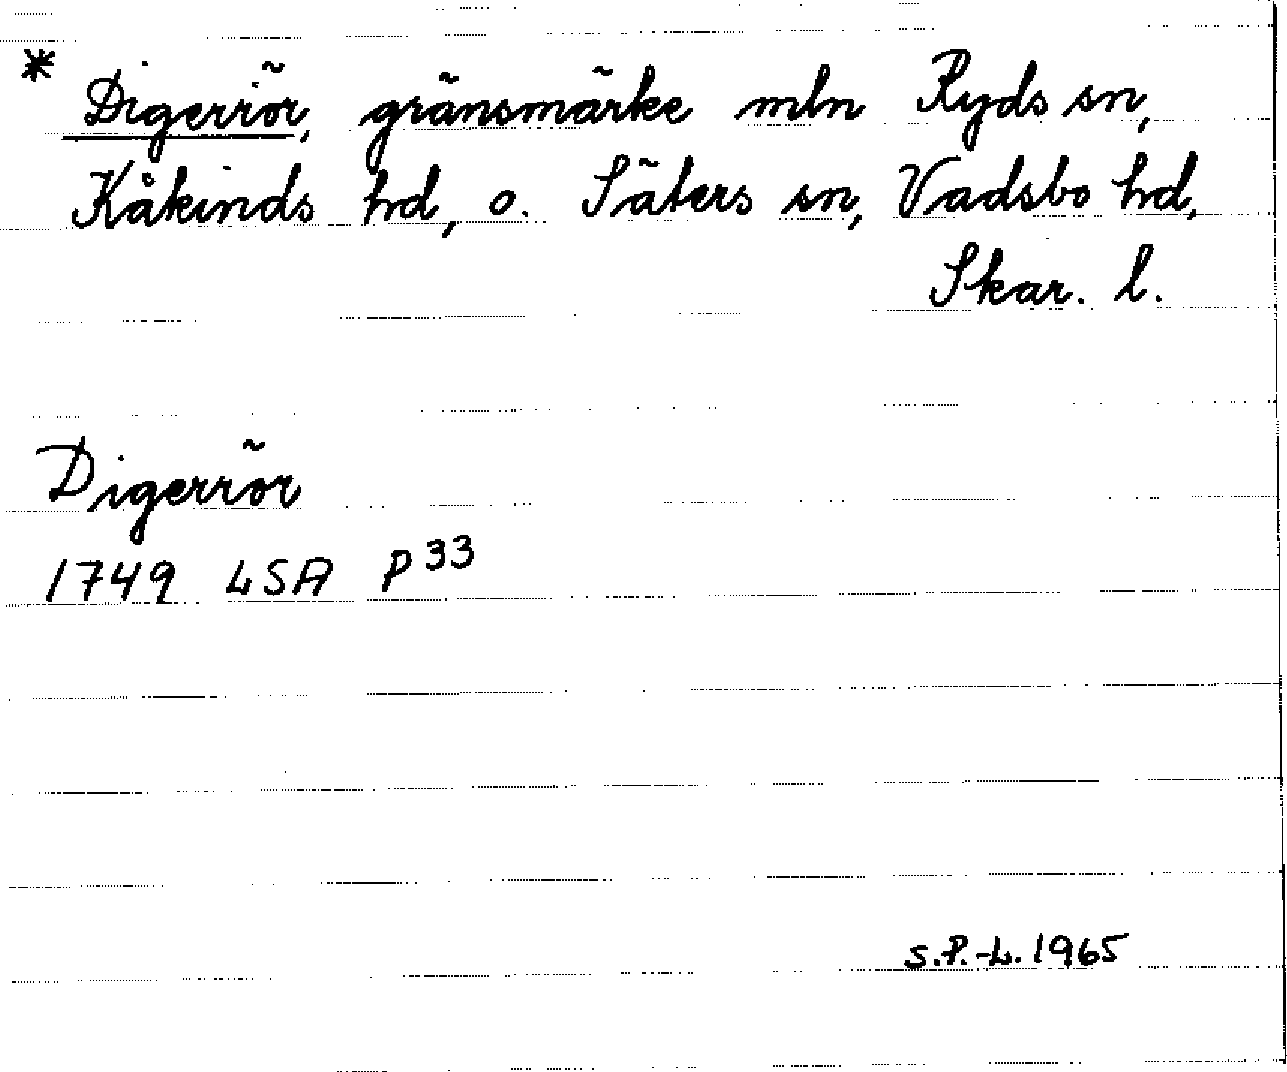 * Digerrör, gränsmärke mln Ryds sn,
Kåkinds hd, o. Säters sn, Vadsbo hd,
Skar. l.
Digerrör
1749 LSA P 33
S.P.-L. 1965